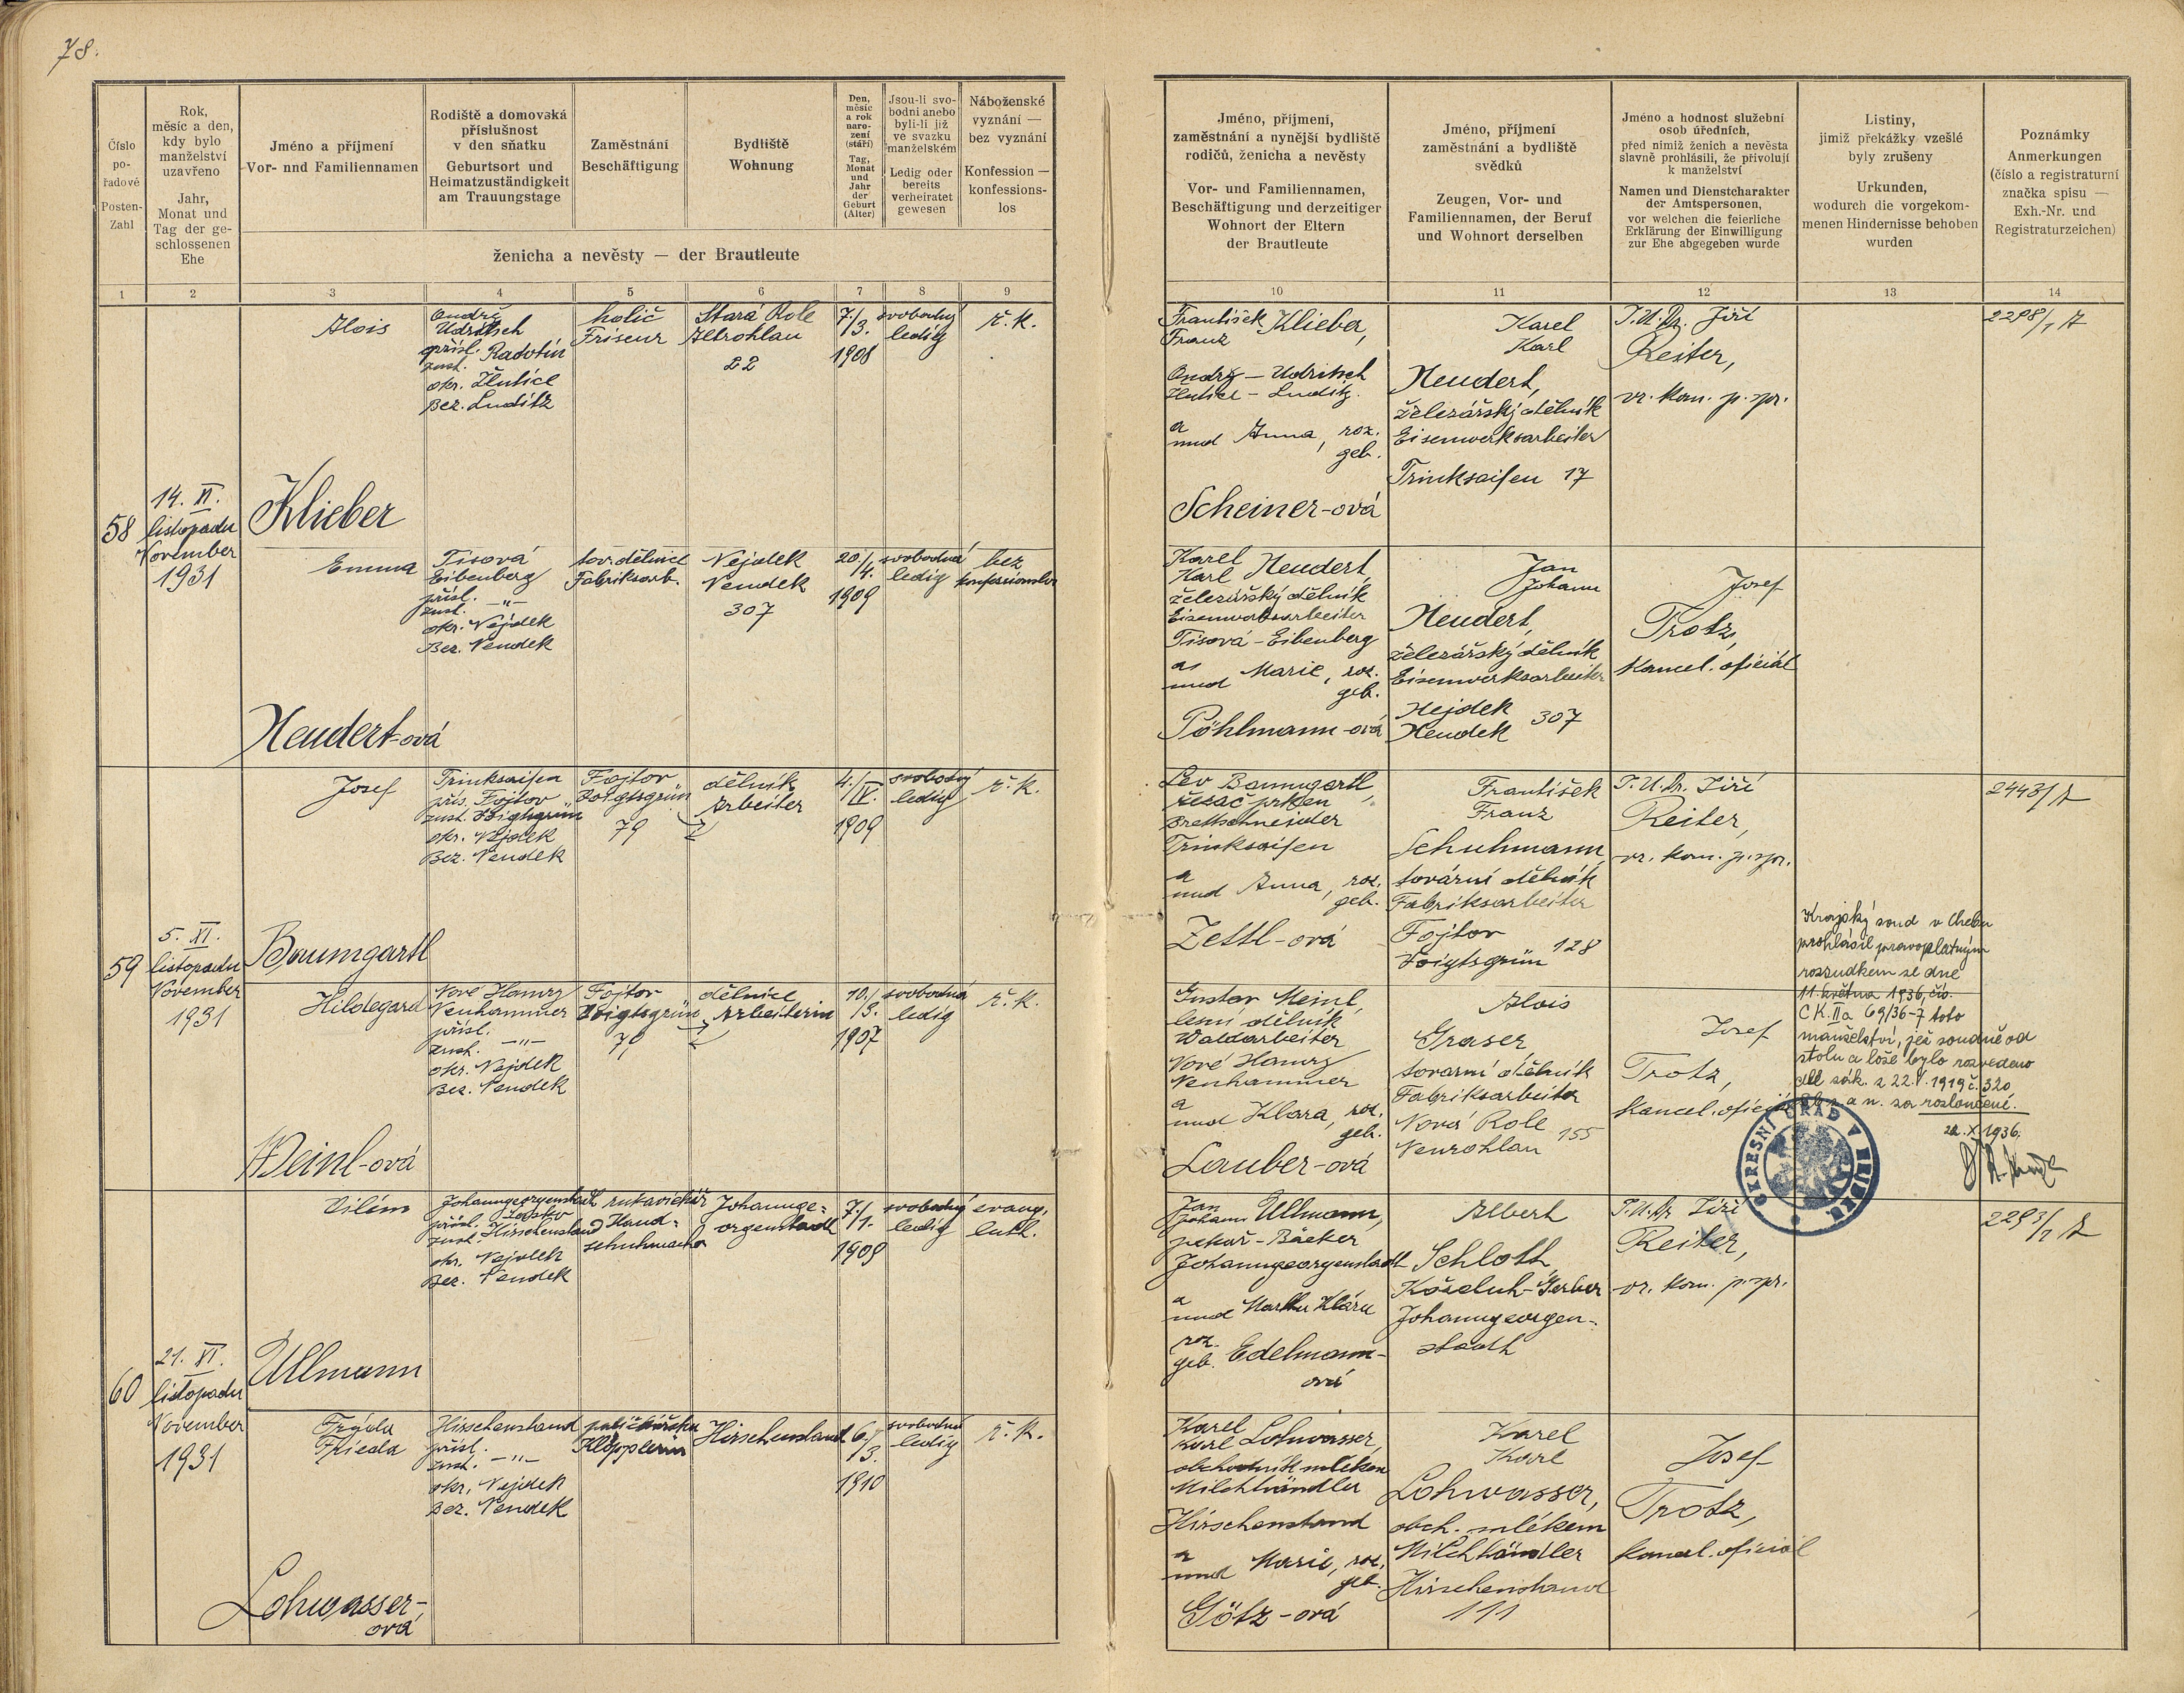 78.
Číslo
po-
řadové
Posten-
Zahl
Rok,
měsíc a den,
kdy bylo
manželství
uzavřeno
Jahr,
Monat und
Tag der ge-
schlossenen
Ehe
Jméno a příjmení
Vor- nnd Familiennamen
Rodiště a domovská
příslušnost
v den sňatku
Geburtsort und
Heimatzuständigkeit
am Trauungstage
Zaměstnání
Beschäftigung
Bydliště
Wohnung
Den,
měsíc
a rok
naro-
zení
(stáří)
Tag,
Monat
und
Jahr
der
Geburt
(Alter)
Jsou-li svo-
bodni anebo
byli-li již
ve svazku
manželském
Ledig oder
bereits
verheiratet
gewesen
Náboženské
vyznání —
bez vyznání
Konfession —
konfessions-
los
ženicha a nevěsty — der Brautleute
Jméno, příjmení,
zaměstnání a nynější bydliště
rodičů, ženicha a nevěsty
Vor- und Familiennamen,
Beschäftigung und derzeitiger
Wohnort der Eltern
der Brautleute
Jméno, příjmení
zaměstnání a bydliště
svědků
Zeugen, Vor- und
Familiennamen, der Beruf
und Wohnort derselben
Jméno a hodnost služební
osob úředních,
před nimiž ženich a nevěsta
slavně prohlásili, že přivolují
k manželství
Namen und Dienstcharakter
der Amtspersonen,
vor welchen die feierliche
Erklärung der Einwilligung
zur Ehe abgegeben wurde
Listiny,
jimiž překážky vzešlé
byly zrušeny
Urkunden,
wodurch die vorgekom-
menen Hindernisse behoben
wurden
Poznámky
Anmerkungen
(číslo a registraturní
značka spisu —
Exh.-Nr. und
Registraturzeichen)
1 2 3 4 5 6 7 8 9 10 11 12 13 14
58
14. XI.
listopadu
November
1931
Alois
Klieber
Ondrž
Udritsch
přísl. Radotín
zust.
okr. Žlutice
Bez. Luditz
holič
Friseur
Stará Role
Altrohlau
22
7./3.
1908
svobodný
ledig
ř. k.
František Klieber,
Franz
Ondrž — Udritsch
Žlutice — Luditz.
a
und Anna, roz.
geb.
Scheiner-ová
Karel
Karl
Neudert,
železářský dělník
Eisenwerksarbeiter
Trinksaifen 17
J.U.Dr. Jiří
Reiter,
vr. kom. p. spr.
Emma
Neudert-ová
Tisová
Eibenberg
přísl.
zust. —"—
okr. Nejdek
Bez. Neudek
tov. dělnice
Fabriksarb.
Nejdek
Neudek
307
20/4.
1909
svobodná
ledig
bez
konfessionslos
Karel
Karl Neudert,
železářský dělník
Eisenwerksarbeiter
Tisová - Eibenberg
a
und Marie, roz.
geb.
Pöhlmann-ová
Jan
Johann
Neudert,
železářský dělník
Eisenwerksarbeiter
Nejdek
Neudek 307
Josef
Trotz,
kancel. oficiál
59
5. XI.
listopadu
November
1931
Josef
Baumgartl
Trinksaifen
přís. Fojtov
zust. Voigtsgrün
okr. Nejdek
Bez. Neudek
Fojtov
Voigtsgrün
79
dělník
Arbeiter
4./IV.
1909
svobodný
ledig
ř. k.
Lev Baumgartl,
řezač prken
Brettschneider
Trinksaifen
a
und Anna, roz.
geb.
Zettl-ová
František
Franz
Schuhmann,
tovární dělník
Fabriksarbeiter
Fojtov
Voigtsgrün 128
J.U.Dr. Jiří
Reiter,
vr. kom. p. spr.
2443/
Hildegard
Meinl-ová
Nové Hamry
Neuhammer
přísl.
zust. —"—
okr. Nejdek
Bez. Neudek
Fojtov
Voigtsgrün
79
dělnice
Arbeiterin
10./3.
1907
svobodná
ledig
ř. k.
Gustav Meinl,
lesní dělník
Waldarbeiter
Nové Hamry
Neuhammer
a
und Klara, roz.
geb.
Lauber-ová
Alois
Graser
tovarní dělník
Fabriksarbeiter
Nová Role
Neurohlau 155
Josef
Trotz,
kancel. oficiál
Krajský soud v Chebu
prohlásil pravoplatným
rozsudkem ze dne
11. května 1936, čís.
CK. IIa 69/36-7 toto
manželství, jež soudně od
stolu a lože bylo rozvedeno
dle zák. z 22.V. 1919 č. 320
Sb. z. a n. za rozloučené.
22. X. 1936.
OKRESNÍ ÚŘAD V NEJDKU
60
21. XI.
listopadu
November
1931
Vilém
Ullmann
Johanngeorgenstadt
přísl.
zust. Hirschenstand
okr. Nejdek
Bez. Neudek
rukavičkář
Hand-
schuhmacher
Johannge-
orgenstadt
7./1.
1909
svobodný
ledig
evang.
luth.
Jan
Johann Ullmann,
pekař - Bäcker
Johanngeorgenstadt
a
und Martha Klára
roz.
geb. Edelmann-
ová
Albert
Schloth,
Koželuh-Gerber
Johanngeorgen-
stadt
J.U.Dr Jiří
Reiter,
vr. kom. p. spr.
Frýda
Frieda
Lohwasser-
ová
Hirschenstand
přísl.
zust. —"—
okr. Nejdek
Bez. Neudek
paličkářka
Klöpplerin
Hirschenstand
6./3.
1910
svobodná
ledig
ř. k.
Karel
Karl Lohwasser,
obchodník mlékem
Milchhändler
Hirschenstand
a
und Marie, roz.
geb.
Götz-ová
Karel
Karl
Lohwasser,
obch. mlékem
Milchhändler
Hirschenstand
111
Josef
Trotz,
kancel. oficiál